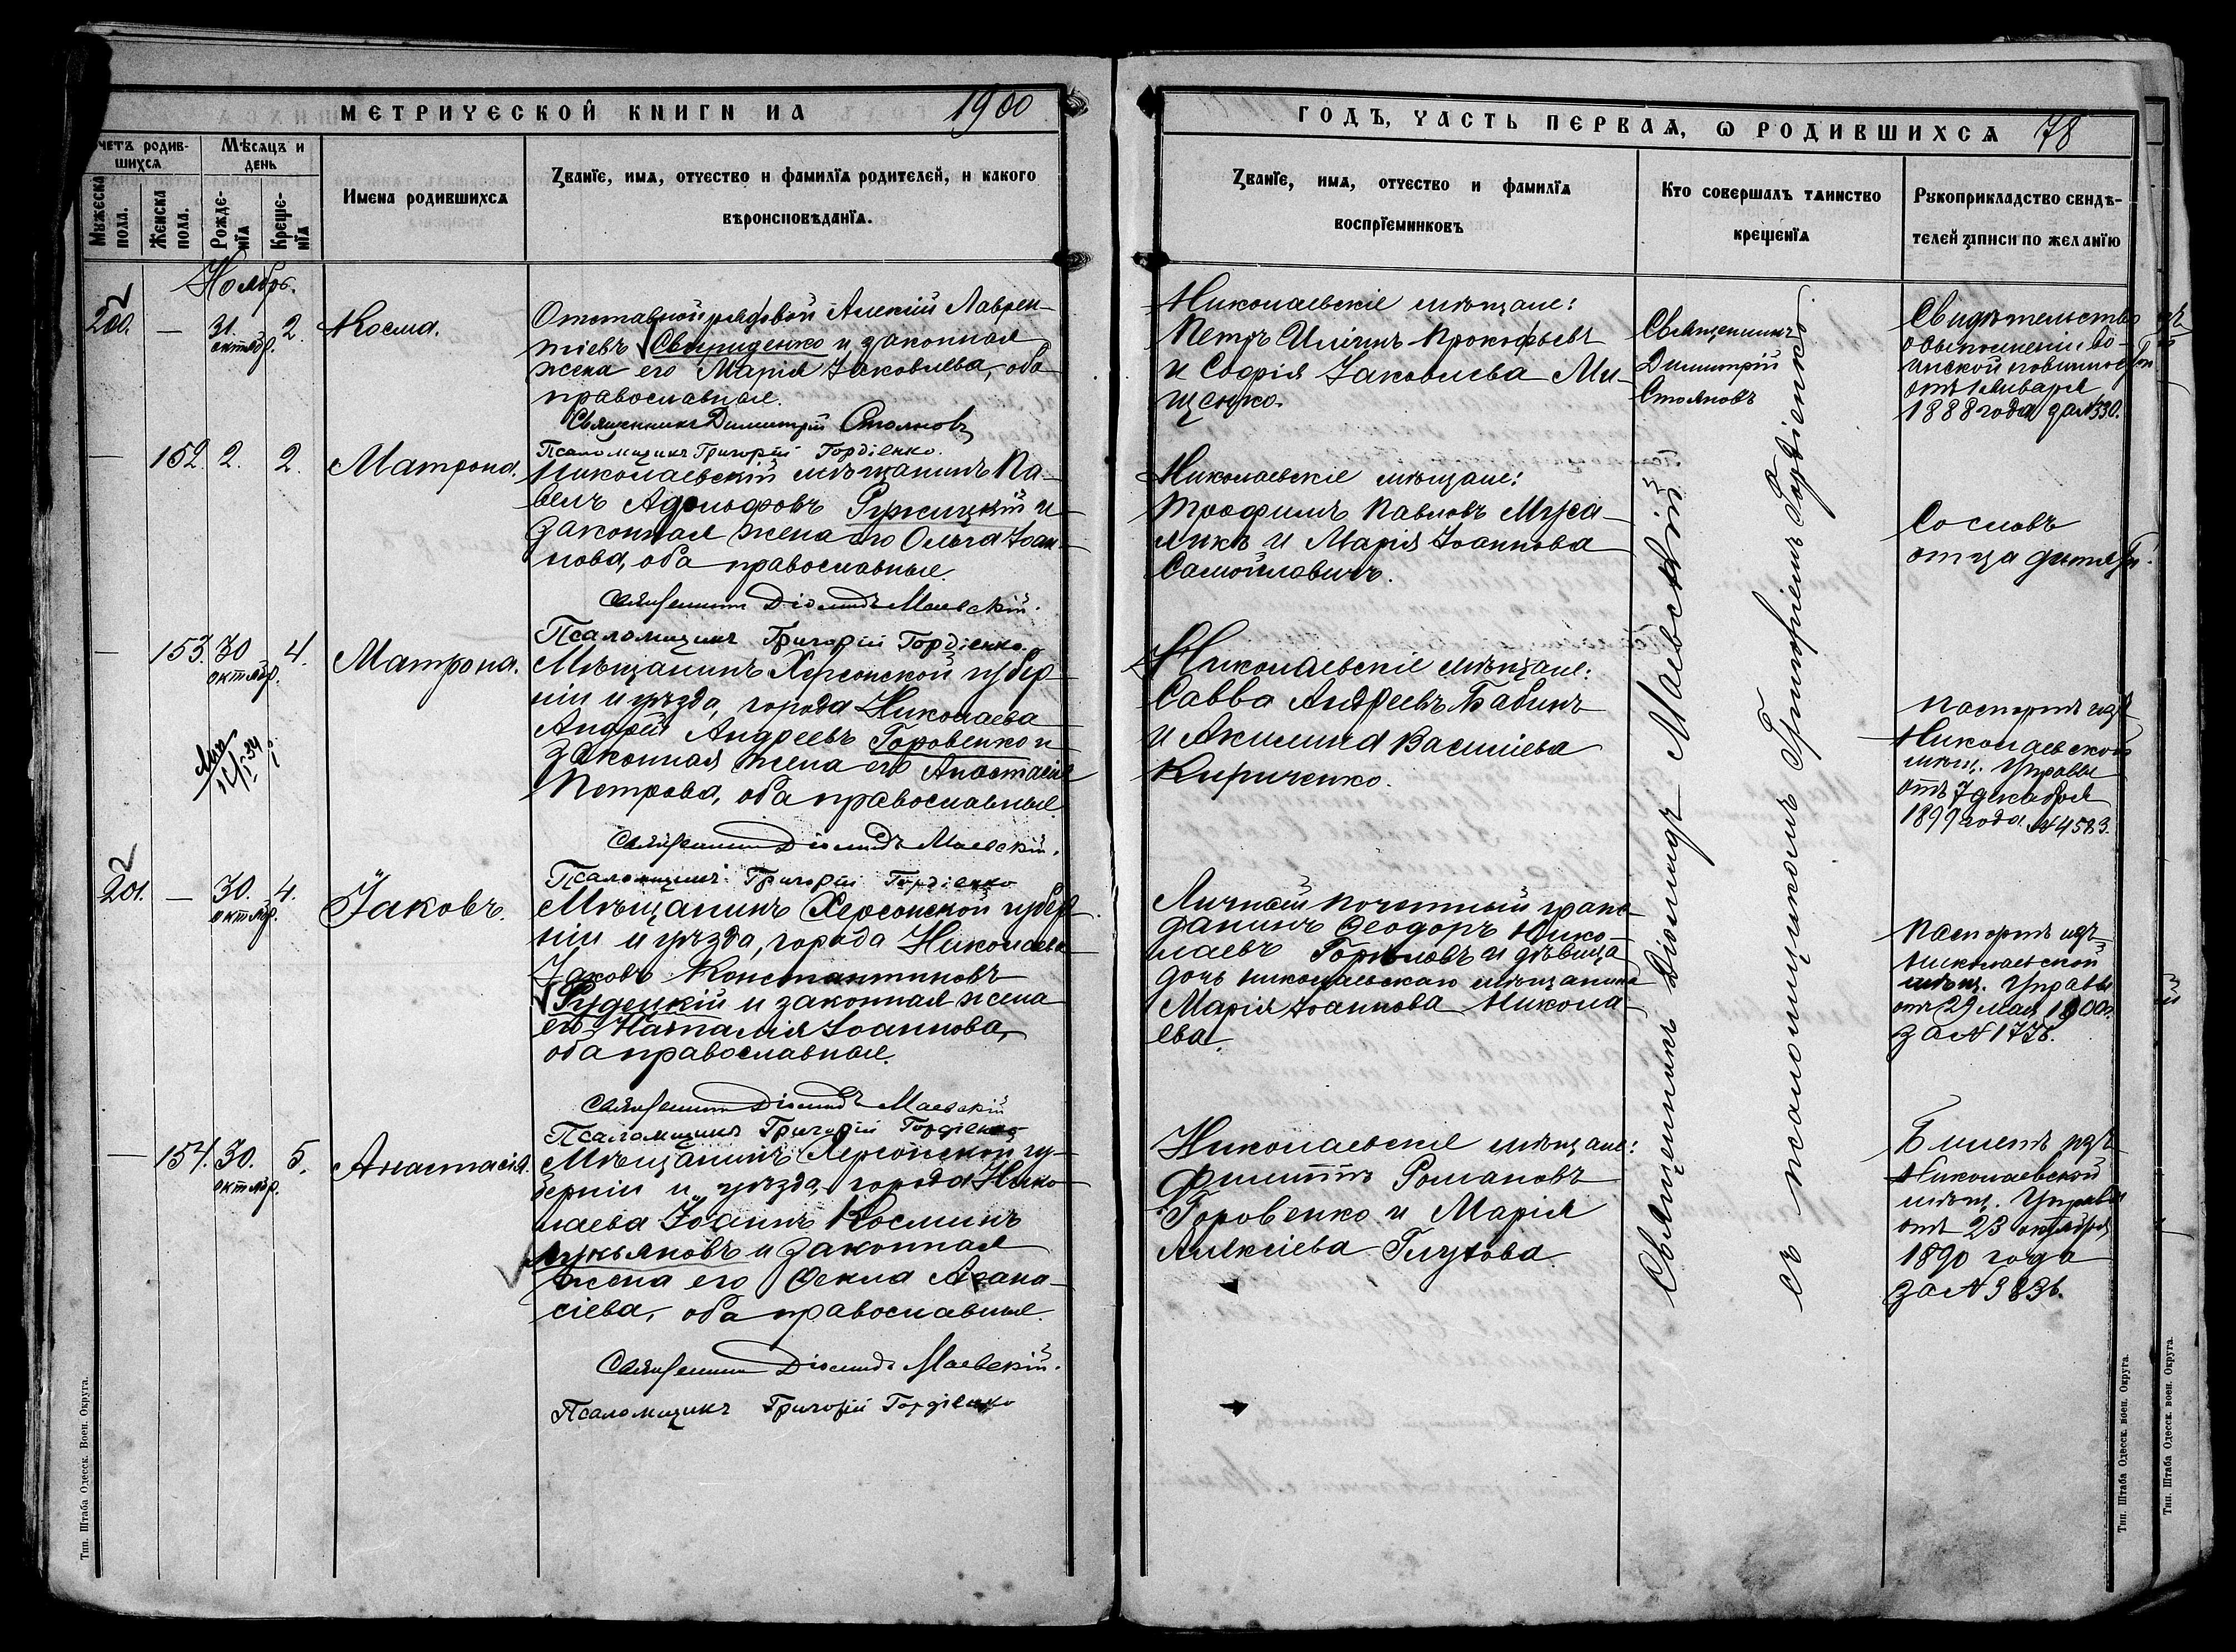 МЕТРИЧЕСКОЙ КНИГИ НА 1900
ГОДЪ, ЧАСТЬ ПЕРВАЯ, Ѡ РОДИВШИХСЯ 78
четъ родив-
шихся
Мужеска
пола.
Женска
пола.
Мѣсяцъ и
день
Рожде-
нія
Креще-
нія
Имена родившихся
Званіе, имя, отчество и фамилія родителей, и какого
вѣроисповѣданія.
Званіе, имя, отчество и фамилія
воспріемниковъ
Кто совершалъ таинство
крещенія
Рукоприкладство свидѣ-
телей записи по желанію
Ноябрь.
200.
—
31.
октябр.
2.
Косма.
Отставной рядовой Алексій Лаврен-
тіевъ Свириденко и законная
жена его Марія Іаковлева, оба
православные.
Священникъ Димитрій Стояновъ
Псаломщикъ Григорій Гордіенко.
Николаевскіе мѣщане:
Петръ Иліинъ Прокофьевъ
и Софія Іаковлева Ми-
щенко.
Священникъ
Димитрій
Стояновъ
Свидѣтельство
о выполненіи во-
инской повинности
отъ 1 января
1888 года за № 330.
—
152.
2.
2.
Матрона.
Николаевскій мѣщанинъ Па-
велъ Адольфовъ Ружицкій и
законная жена его Ольга Іоан-
нова, оба православные.
Священникъ Діомидъ Маевскій.
Псаломщикъ Григорій Гордіенко.
Николаевскіе мѣщане:
Трофимъ Павловъ Муса-
ликъ и Марія Іоаннова
Самойловичъ.
Со словъ
отца дитяти.
—
153.
30
октябр.
4.
Матрона.
Мѣщанинъ Херсонской губер-
ніи и уѣзда, города Николаева
Андрей Андреевъ Горовенко и
законная жена его Анастасія
Петрова, оба православные.
Священникъ Діомидъ Маевскій.
Псаломщикъ Григорій Гордіенко
Николаевскіе мѣщане:
Савва Андреевъ Бабинъ
и Акилина Василіева
Кириченко.
Паспортъ изъ
Николаевской
мѣщ. Управы
отъ 7 декабря
1899 года № 4583.
201.
—
30.
октябр.
4.
Іаковъ.
Мѣщанинъ Херсонской губер-
ніи и уѣзда, города Николаева
Іаковъ Константиновъ
Рудецкій и законная жена
его Наталія Іоаннова,
оба православные.
Священникъ Діомидъ Маевскій
Псаломщикъ Григорій Гордіенко
Личный почетный граж-
данинъ Ѳеодоръ Нико-
лаевъ Горѣловъ и дѣвица
дочь николаевскаго мѣщанина
Марія Іоаннова Никола-
ева.
Паспортъ изъ
Николаевской
мѣщ. Управы
отъ 29 мая 1900 г.
за № 1778.
—
154.
30.
октябр.
5.
Анастасія.
Мѣщанинъ Херсонской гу-
берніи и уѣзда, города Нико-
лаева Іоаннъ Косминъ
Лукьяновъ и законная
жена его Ѳекла Аѳана-
сіева, оба православные.
Священникъ Діомидъ Маевскій.
Псаломщикъ Григорій Гордіенко
Николаевскіе мѣщане:
Филиппъ Романовъ
Горовенко и Марія
Алексіева Глухова.
Билетъ изъ
Николаевской
мѣщ. Управы
отъ 23 октября
1890 года
за № 3836.
Священникъ Діомидъ Маевскій
съ псаломщикомъ Григоріемъ Гордіенко.
Тип. Штаба Одесск. Воен. Округа.
Тип. Штаба Одесск. воен. Округа.
Тип. Штаба Одесск. воен. Округа.